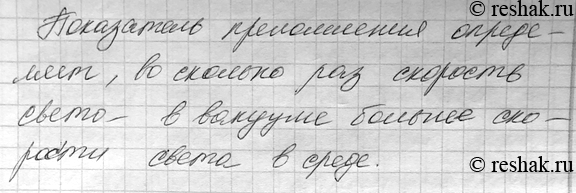 © reshak.ru
Показатель преломления опреде-
ляет, во сколько раз скорость
света в вакууме больше ско-
рости света в среде.
© reshak.ru